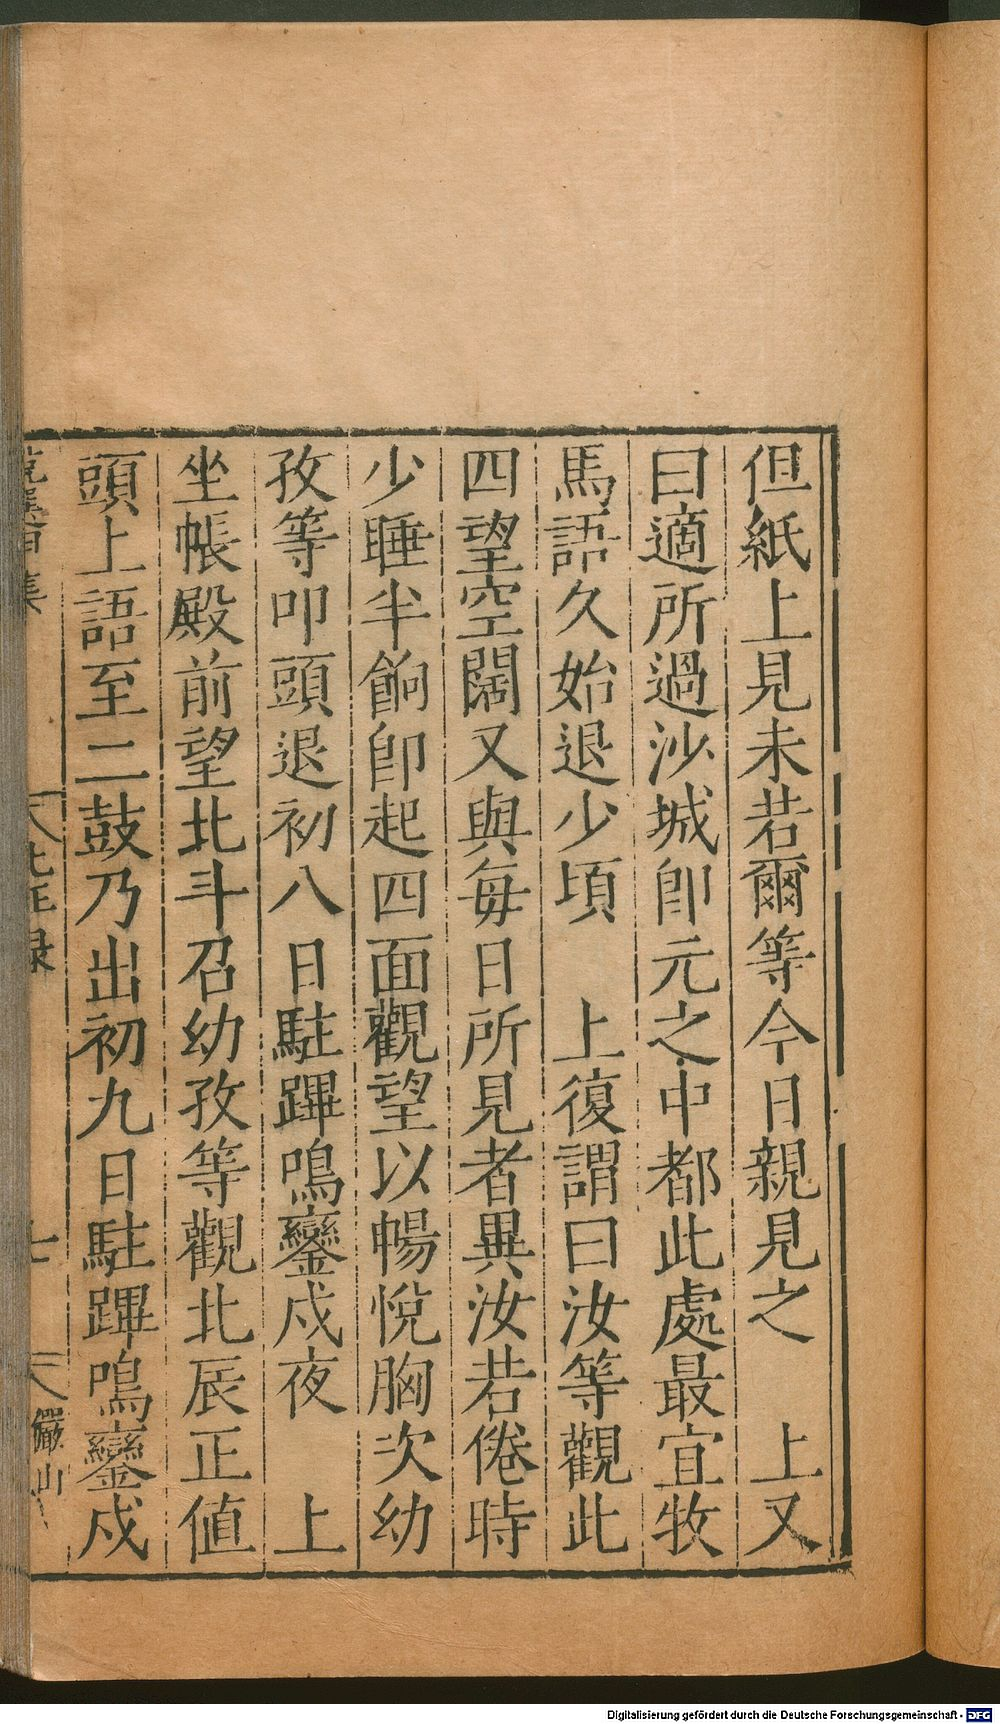 但紙上見未若爾等今日親見之　上又
曰適所過沙城卽元之中都此處最宜牧
馬語久始退少頃　上復謂曰汝等觀此
四望空闊又與每日所見者異汝若倦時
少睡半餉卽起四面觀望以暢悅胸次幼
孜等叩頭退初八日駐蹕鳴鑾戍夜　上
坐帳殿前望北斗召幼孜等觀北辰正值
頭上語至二鼓乃出初九日駐蹕鳴鑾戍
七
儼山
Digitalisierung gefördert durch die Deutsche Forschungsgemeinschaft - DFG